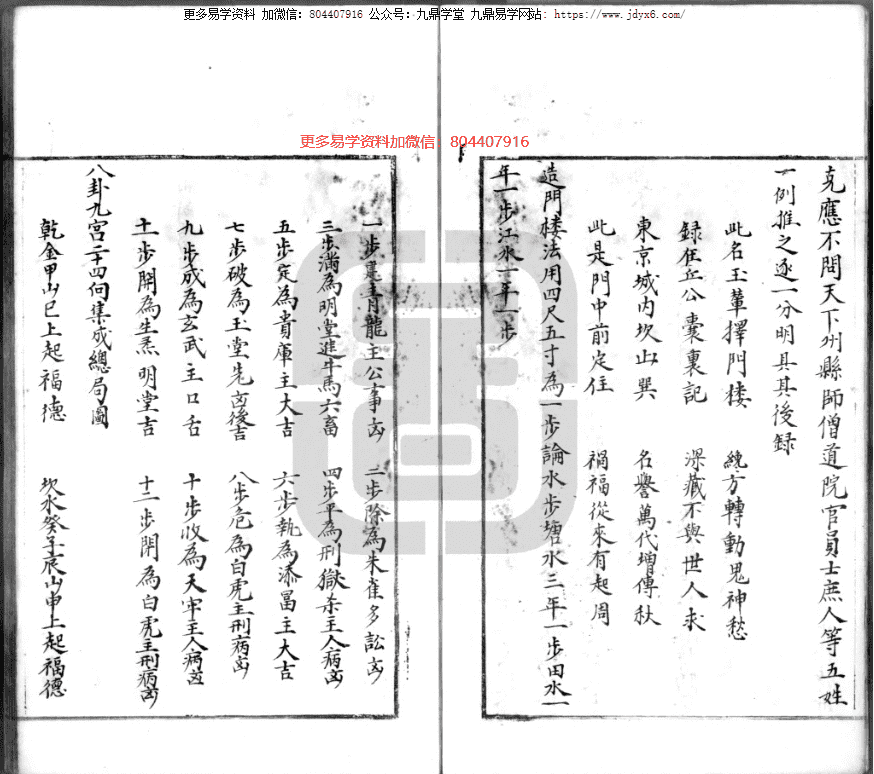 更多易学资料 加微信：804407916 公众号：九鼎学堂 九鼎易学网站：https://www.jdyx6.com/
更多易学资料加微信：804407916
克應不問天下州縣師僧道院官員士庶人等五姓
一例推之逐一分明具其後録
此名玉輦擇門楼 方轉動鬼神愁
録在丘公囊裏記 深藏不與世人求
東京城内坎山巽 名譽萬代増傳秋
此是門中前定住 禍福從來有起周
造門楼法用四尺五寸為一步論水步塘水三年一步田水一
年一步江水一年一步
一步建青龍主公事凶 二步除為朱雀多訟凶
三步滿為明堂進牛馬六畜 四步平為刑獄杀主人病凶
五步定為貴庫主大吉 六步執為添畐主大吉
七步破為玉堂先凶後吉 八步危為白虎主刑病凶
九步成為玄武主口舌 十步收為天牢主人病凶
十一步開為生炁明堂吉 十二步閉為白虎主刑病凶
八卦九宫二十四向集成總局圖
乾金甲山巳上起福德 坎水癸子辰山申上起福德